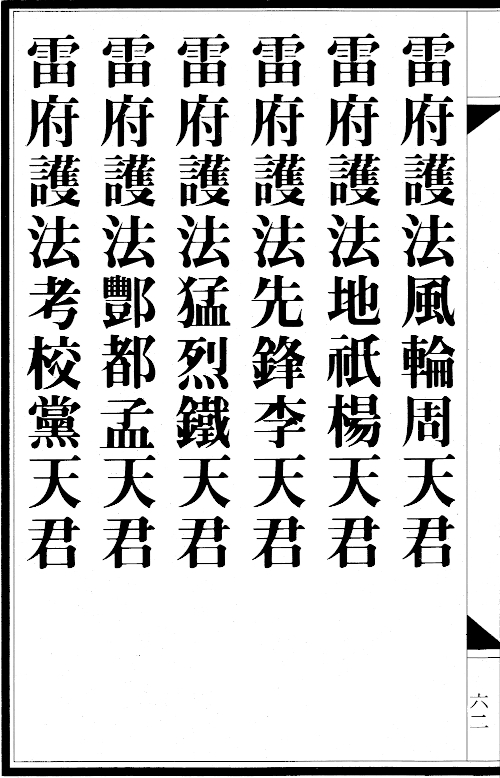 雷府護法風輪周天君
雷府護法地祇楊天君
雷府護法先鋒李天君
雷府護法猛烈鐵天君
雷府護法酆都孟天君
雷府護法考校黨天君
六二